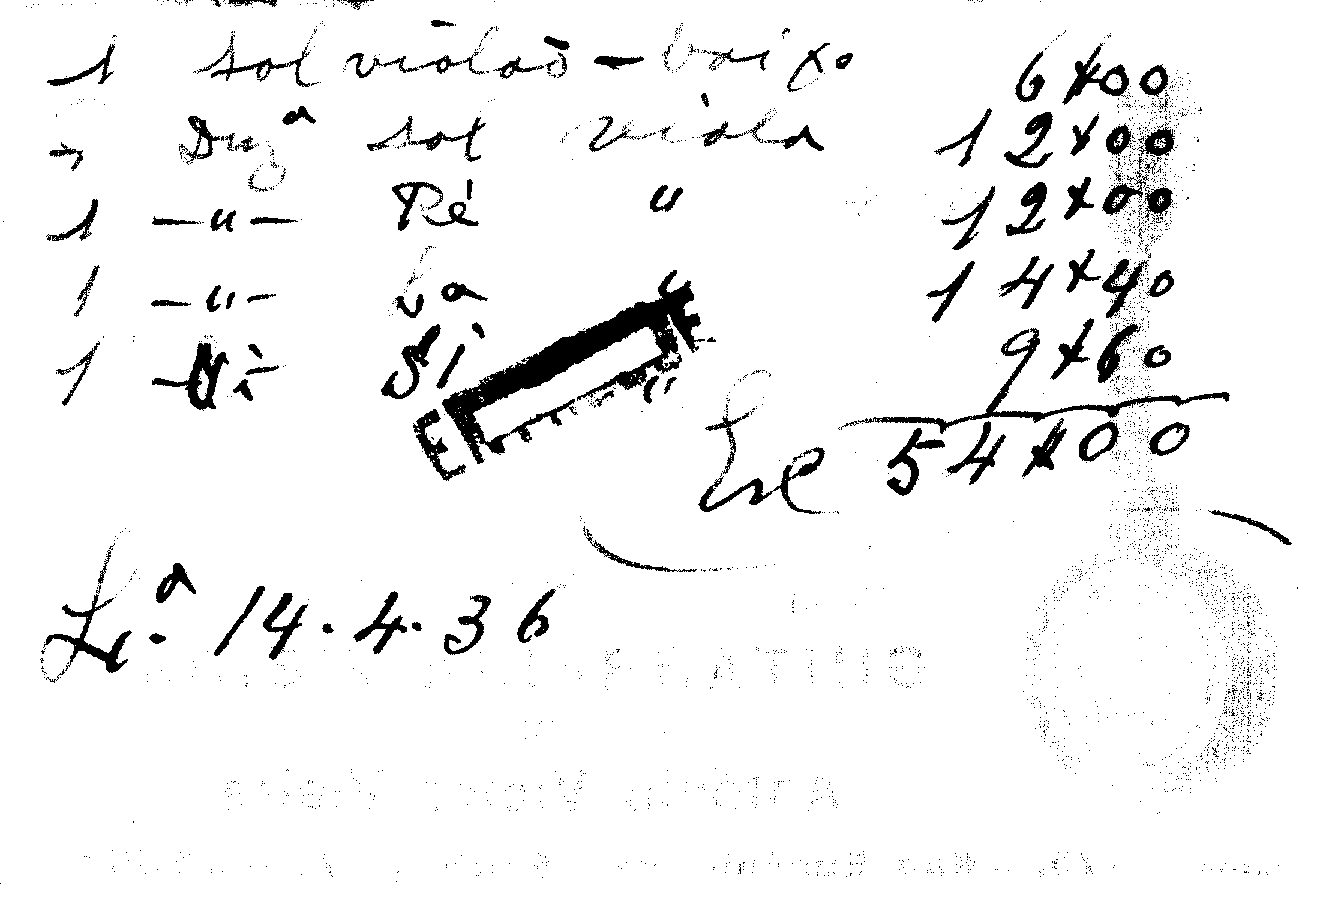 1 sol violaõ - baixo 6$00
" Duzª sol viola 12$00
1 —"— Ré " 12$00
1 —"— La " 14$40
1 —"— Si " 9$60
Esc 54$00
Lxª. 14.4.36